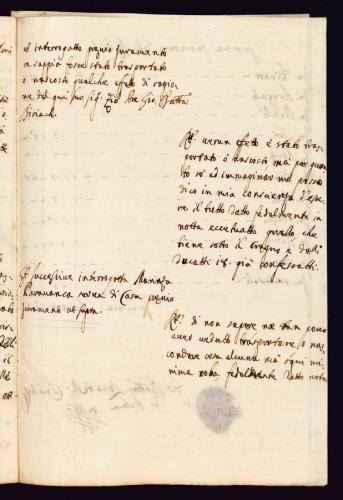 è interrogatto previo juramento
se sappia fosse stato trasportato
o nascosto qualche efeto di ragio
ne del qm suo Sig. Zio Gio: Batta
Rt. verun efeto è stato tras
portato ò nascosto mà per quan
to se ed immaginar mi posso
dico in mia conscienza d'esse
re il tutto datto fedelmente in
notta eccettuatto quello che
tiene sotto il
Ducatti già confessatti.
Et successive interrogatta Marinza
serva di Casa previo
juramento ut supra.
Rt. di non sapere ne tam poco
aver veduto trasportare o nas
condere cosa alcuna mà ogni mi
nima roba fedelmente datto notta